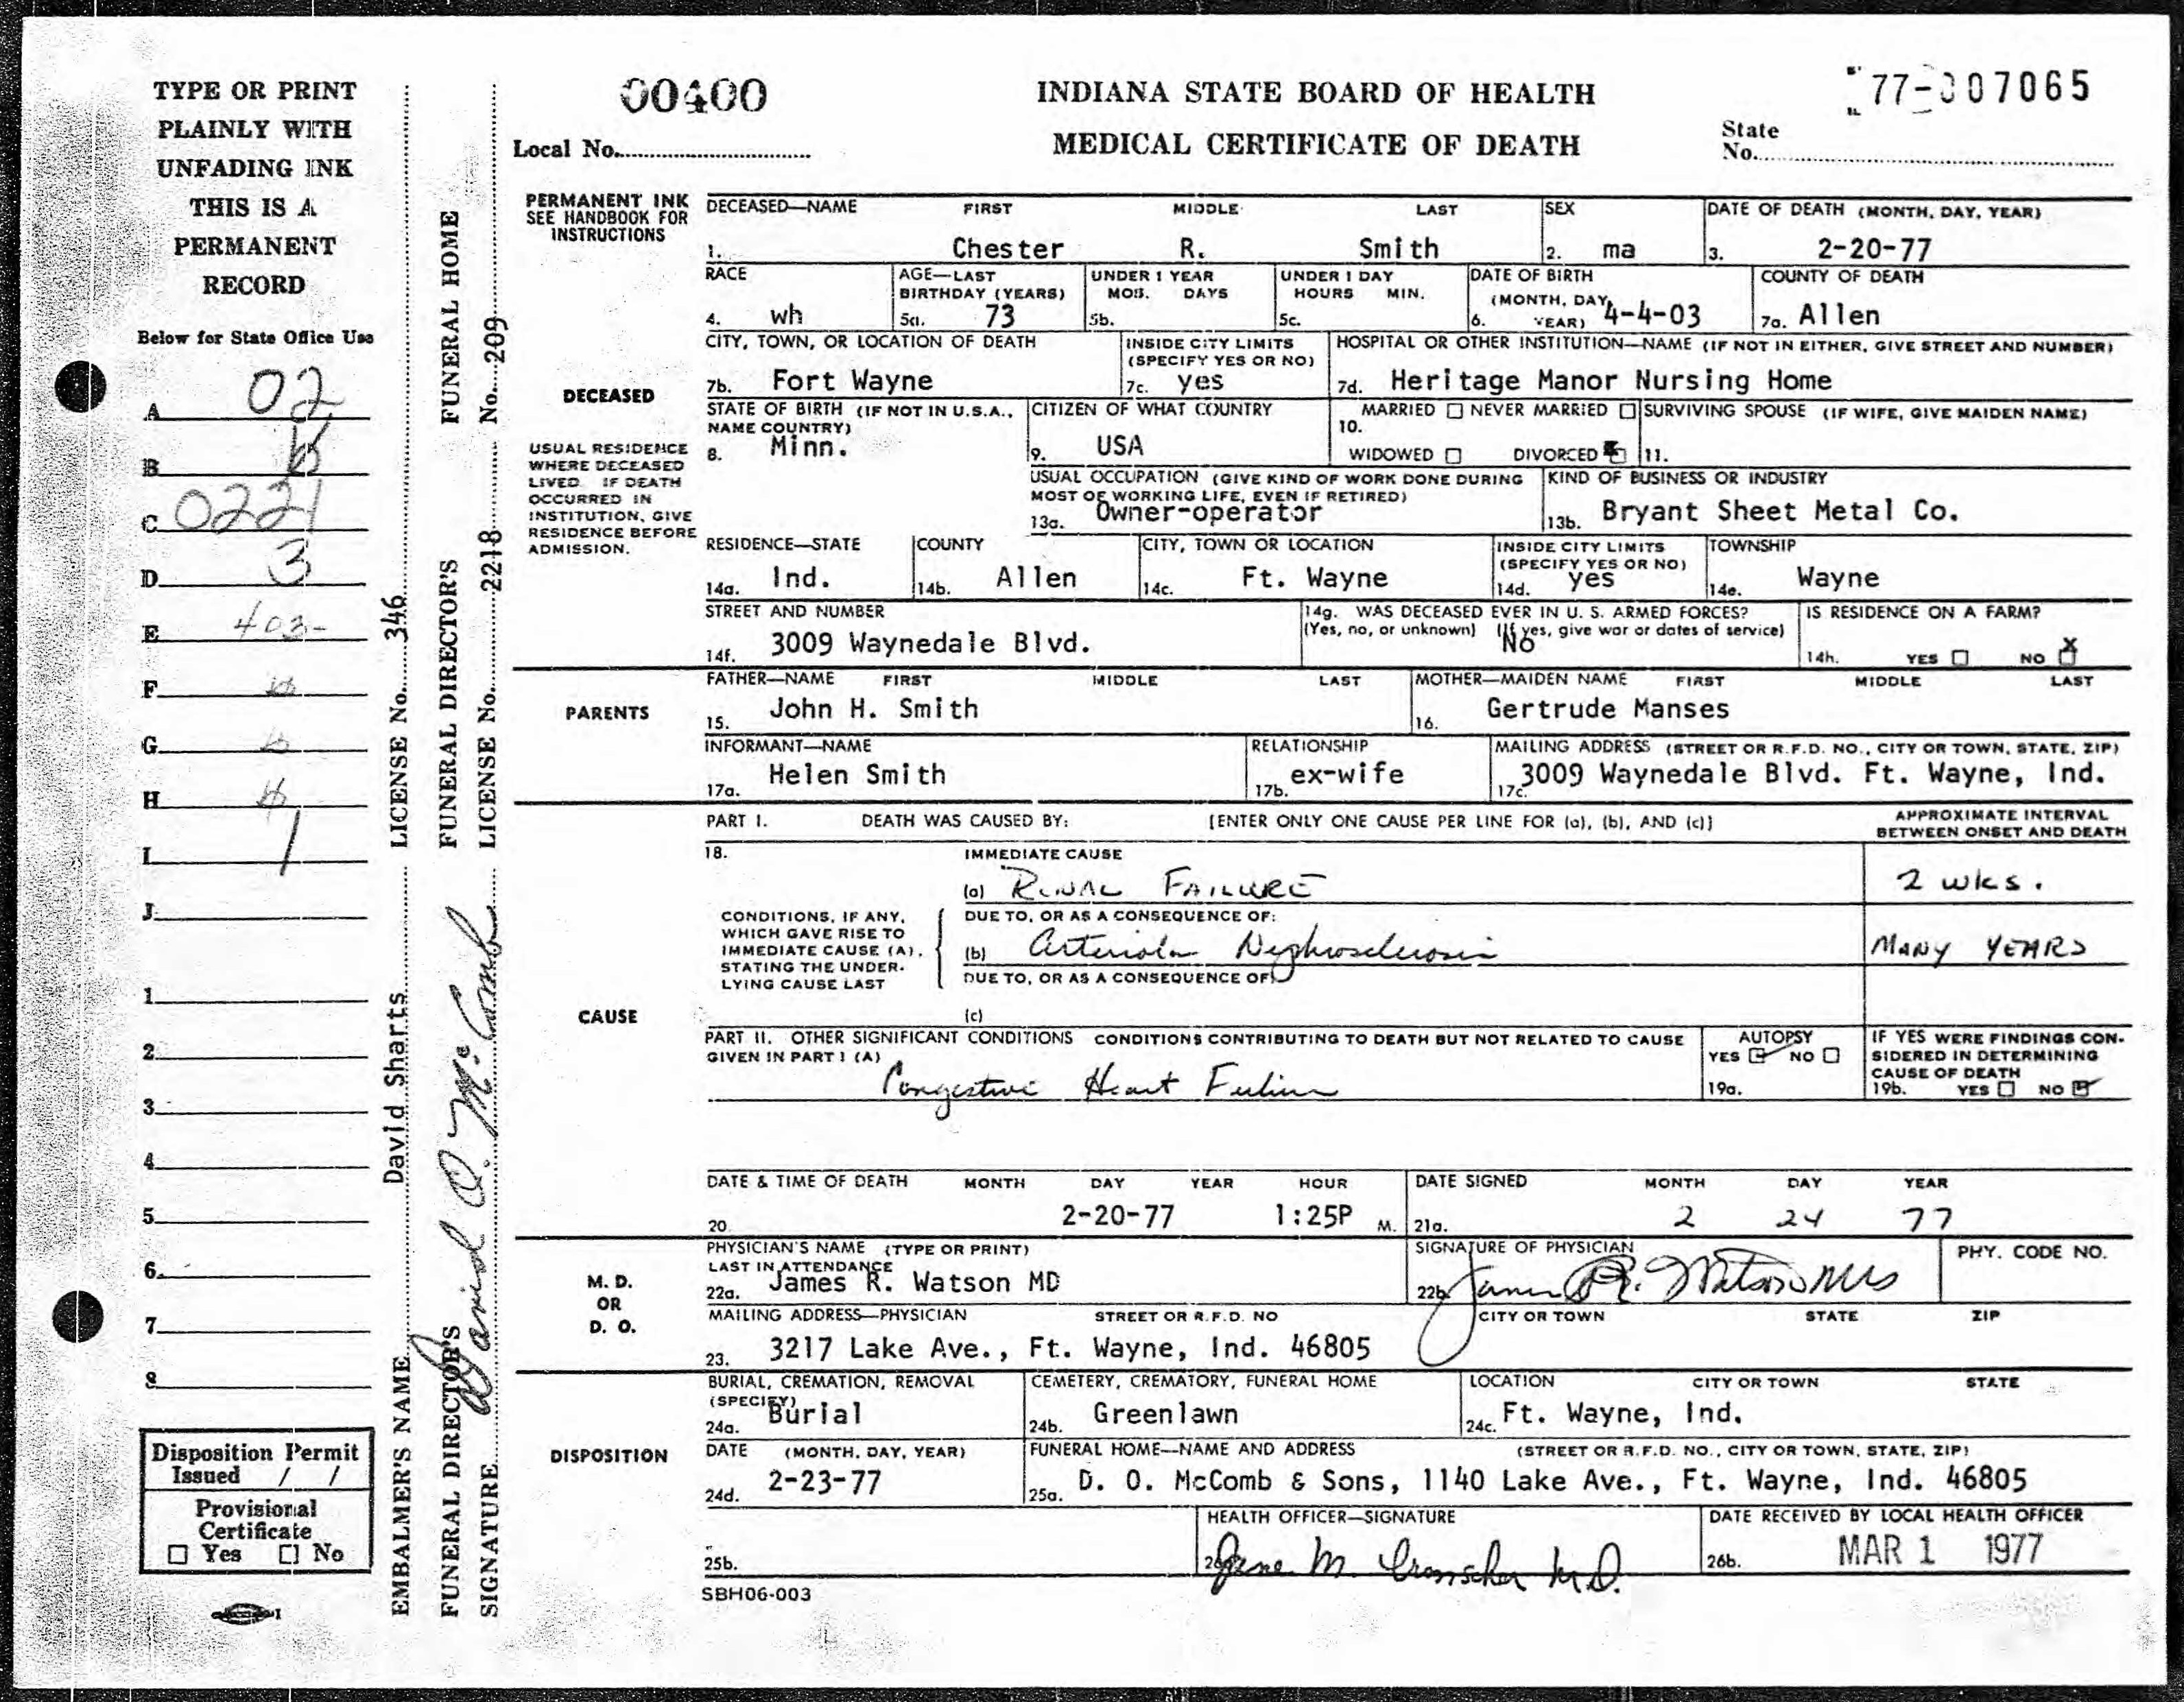 TYPE OR PRINT
PLAINLY WITH
UNFADING INK
THIS IS A
PERMANENT
RECORD
Below for State Office Use
A 02
B
C 0221
D 3
E 403-
F
G
H
I 1
J
1
2
3
4
5
6
7
8
Disposition Permit
Issued / /
Provisional
Certificate
☐ Yes ☐ No
EMBALMER'S NAME David Sharts LICENSE No. 346
FUNERAL DIRECTOR'S FUNERAL DIRECTOR'S FUNERAL HOME
SIGNATURE David O. McComb LICENSE No. 2218 No. 209
00400
Local No.
INDIANA STATE BOARD OF HEALTH
MEDICAL CERTIFICATE OF DEATH
77-007065
State
No.
PERMANENT INK
SEE HANDBOOK FOR
INSTRUCTIONS
DECEASED—NAME FIRST MIDDLE LAST SEX DATE OF DEATH (MONTH, DAY, YEAR)
1. Chester R. Smith 2. ma 3. 2-20-77
RACE AGE—LAST UNDER 1 YEAR UNDER 1 DAY DATE OF BIRTH COUNTY OF DEATH
BIRTHDAY (YEARS) MOS. DAYS HOURS MIN. (MONTH, DAY,
4. wh 5a. 73 5b. 5c. 6. YEAR) 4-4-03 7a. Allen
DECEASED
CITY, TOWN, OR LOCATION OF DEATH INSIDE CITY LIMITS HOSPITAL OR OTHER INSTITUTION—NAME (IF NOT IN EITHER, GIVE STREET AND NUMBER)
(SPECIFY YES OR NO)
7b. Fort Wayne 7c. yes 7d. Heritage Manor Nursing Home
STATE OF BIRTH (IF NOT IN U.S.A., CITIZEN OF WHAT COUNTRY MARRIED ☐ NEVER MARRIED ☐ SURVIVING SPOUSE (IF WIFE, GIVE MAIDEN NAME)
NAME COUNTRY) 10.
8. Minn. 9. USA WIDOWED ☐ DIVORCED ☒ 11.
USUAL RESIDENCE
WHERE DECEASED
LIVED. IF DEATH
OCCURRED IN
INSTITUTION, GIVE
RESIDENCE BEFORE
ADMISSION.
USUAL OCCUPATION (GIVE KIND OF WORK DONE DURING KIND OF BUSINESS OR INDUSTRY
MOST OF WORKING LIFE, EVEN IF RETIRED)
13a. Owner-operator 13b. Bryant Sheet Metal Co.
RESIDENCE—STATE COUNTY CITY, TOWN OR LOCATION INSIDE CITY LIMITS TOWNSHIP
(SPECIFY YES OR NO)
14a. Ind. 14b. Allen 14c. Ft. Wayne 14d. yes 14e. Wayne
STREET AND NUMBER 14g. WAS DECEASED EVER IN U. S. ARMED FORCES? IS RESIDENCE ON A FARM?
(Yes, no, or unknown) (If yes, give war or dates of service)
14f. 3009 Waynedale Blvd. No 14h. YES ☐ NO ☒
PARENTS
FATHER—NAME FIRST MIDDLE LAST MOTHER—MAIDEN NAME FIRST MIDDLE LAST
15. John H. Smith 16. Gertrude Manses
INFORMANT—NAME RELATIONSHIP MAILING ADDRESS (STREET OR R.F.D. NO., CITY OR TOWN, STATE, ZIP)
17a. Helen Smith 17b. ex-wife 17c. 3009 Waynedale Blvd. Ft. Wayne, Ind.
CAUSE
PART I. DEATH WAS CAUSED BY: [ENTER ONLY ONE CAUSE PER LINE FOR (a), (b), AND (c)] APPROXIMATE INTERVAL
BETWEEN ONSET AND DEATH
18. IMMEDIATE CAUSE
(a) RENAL FAILURE 2 wks.
CONDITIONS, IF ANY,
WHICH GAVE RISE TO
IMMEDIATE CAUSE (A),
STATING THE UNDER-
LYING CAUSE LAST
DUE TO, OR AS A CONSEQUENCE OF:
(b) Arteriolar Nephrosclerosis MANY YEARS
DUE TO, OR AS A CONSEQUENCE OF:
(c)
PART II. OTHER SIGNIFICANT CONDITIONS CONDITIONS CONTRIBUTING TO DEATH BUT NOT RELATED TO CAUSE
GIVEN IN PART I (A)
Congestive Heart Failure
AUTOPSY
YES ☑ NO ☐
19a.
IF YES WERE FINDINGS CON-
SIDERED IN DETERMINING
CAUSE OF DEATH
19b. YES ☐ NO ☑
DATE & TIME OF DEATH MONTH DAY YEAR HOUR DATE SIGNED MONTH DAY YEAR
20 2-20-77 1:25P M. 21a. 2 24 77
M. D.
OR
D. O.
PHYSICIAN'S NAME (TYPE OR PRINT) SIGNATURE OF PHYSICIAN PHY. CODE NO.
LAST IN ATTENDANCE
22a. James R. Watson MD 22b. James R. Watson MD
MAILING ADDRESS—PHYSICIAN STREET OR R.F.D. NO CITY OR TOWN STATE ZIP
23. 3217 Lake Ave., Ft. Wayne, Ind. 46805
DISPOSITION
BURIAL, CREMATION, REMOVAL CEMETERY, CREMATORY, FUNERAL HOME LOCATION CITY OR TOWN STATE
(SPECIFY)
24a. Burial 24b. Greenlawn 24c. Ft. Wayne, Ind.
DATE (MONTH, DAY, YEAR) FUNERAL HOME—NAME AND ADDRESS (STREET OR R.F.D. NO., CITY OR TOWN, STATE, ZIP)
24d. 2-23-77 25a. D. O. McComb & Sons, 1140 Lake Ave., Ft. Wayne, Ind. 46805
HEALTH OFFICER—SIGNATURE DATE RECEIVED BY LOCAL HEALTH OFFICER
25b. Jane M. M.D. 26b. MAR 1 1977
SBH06-003